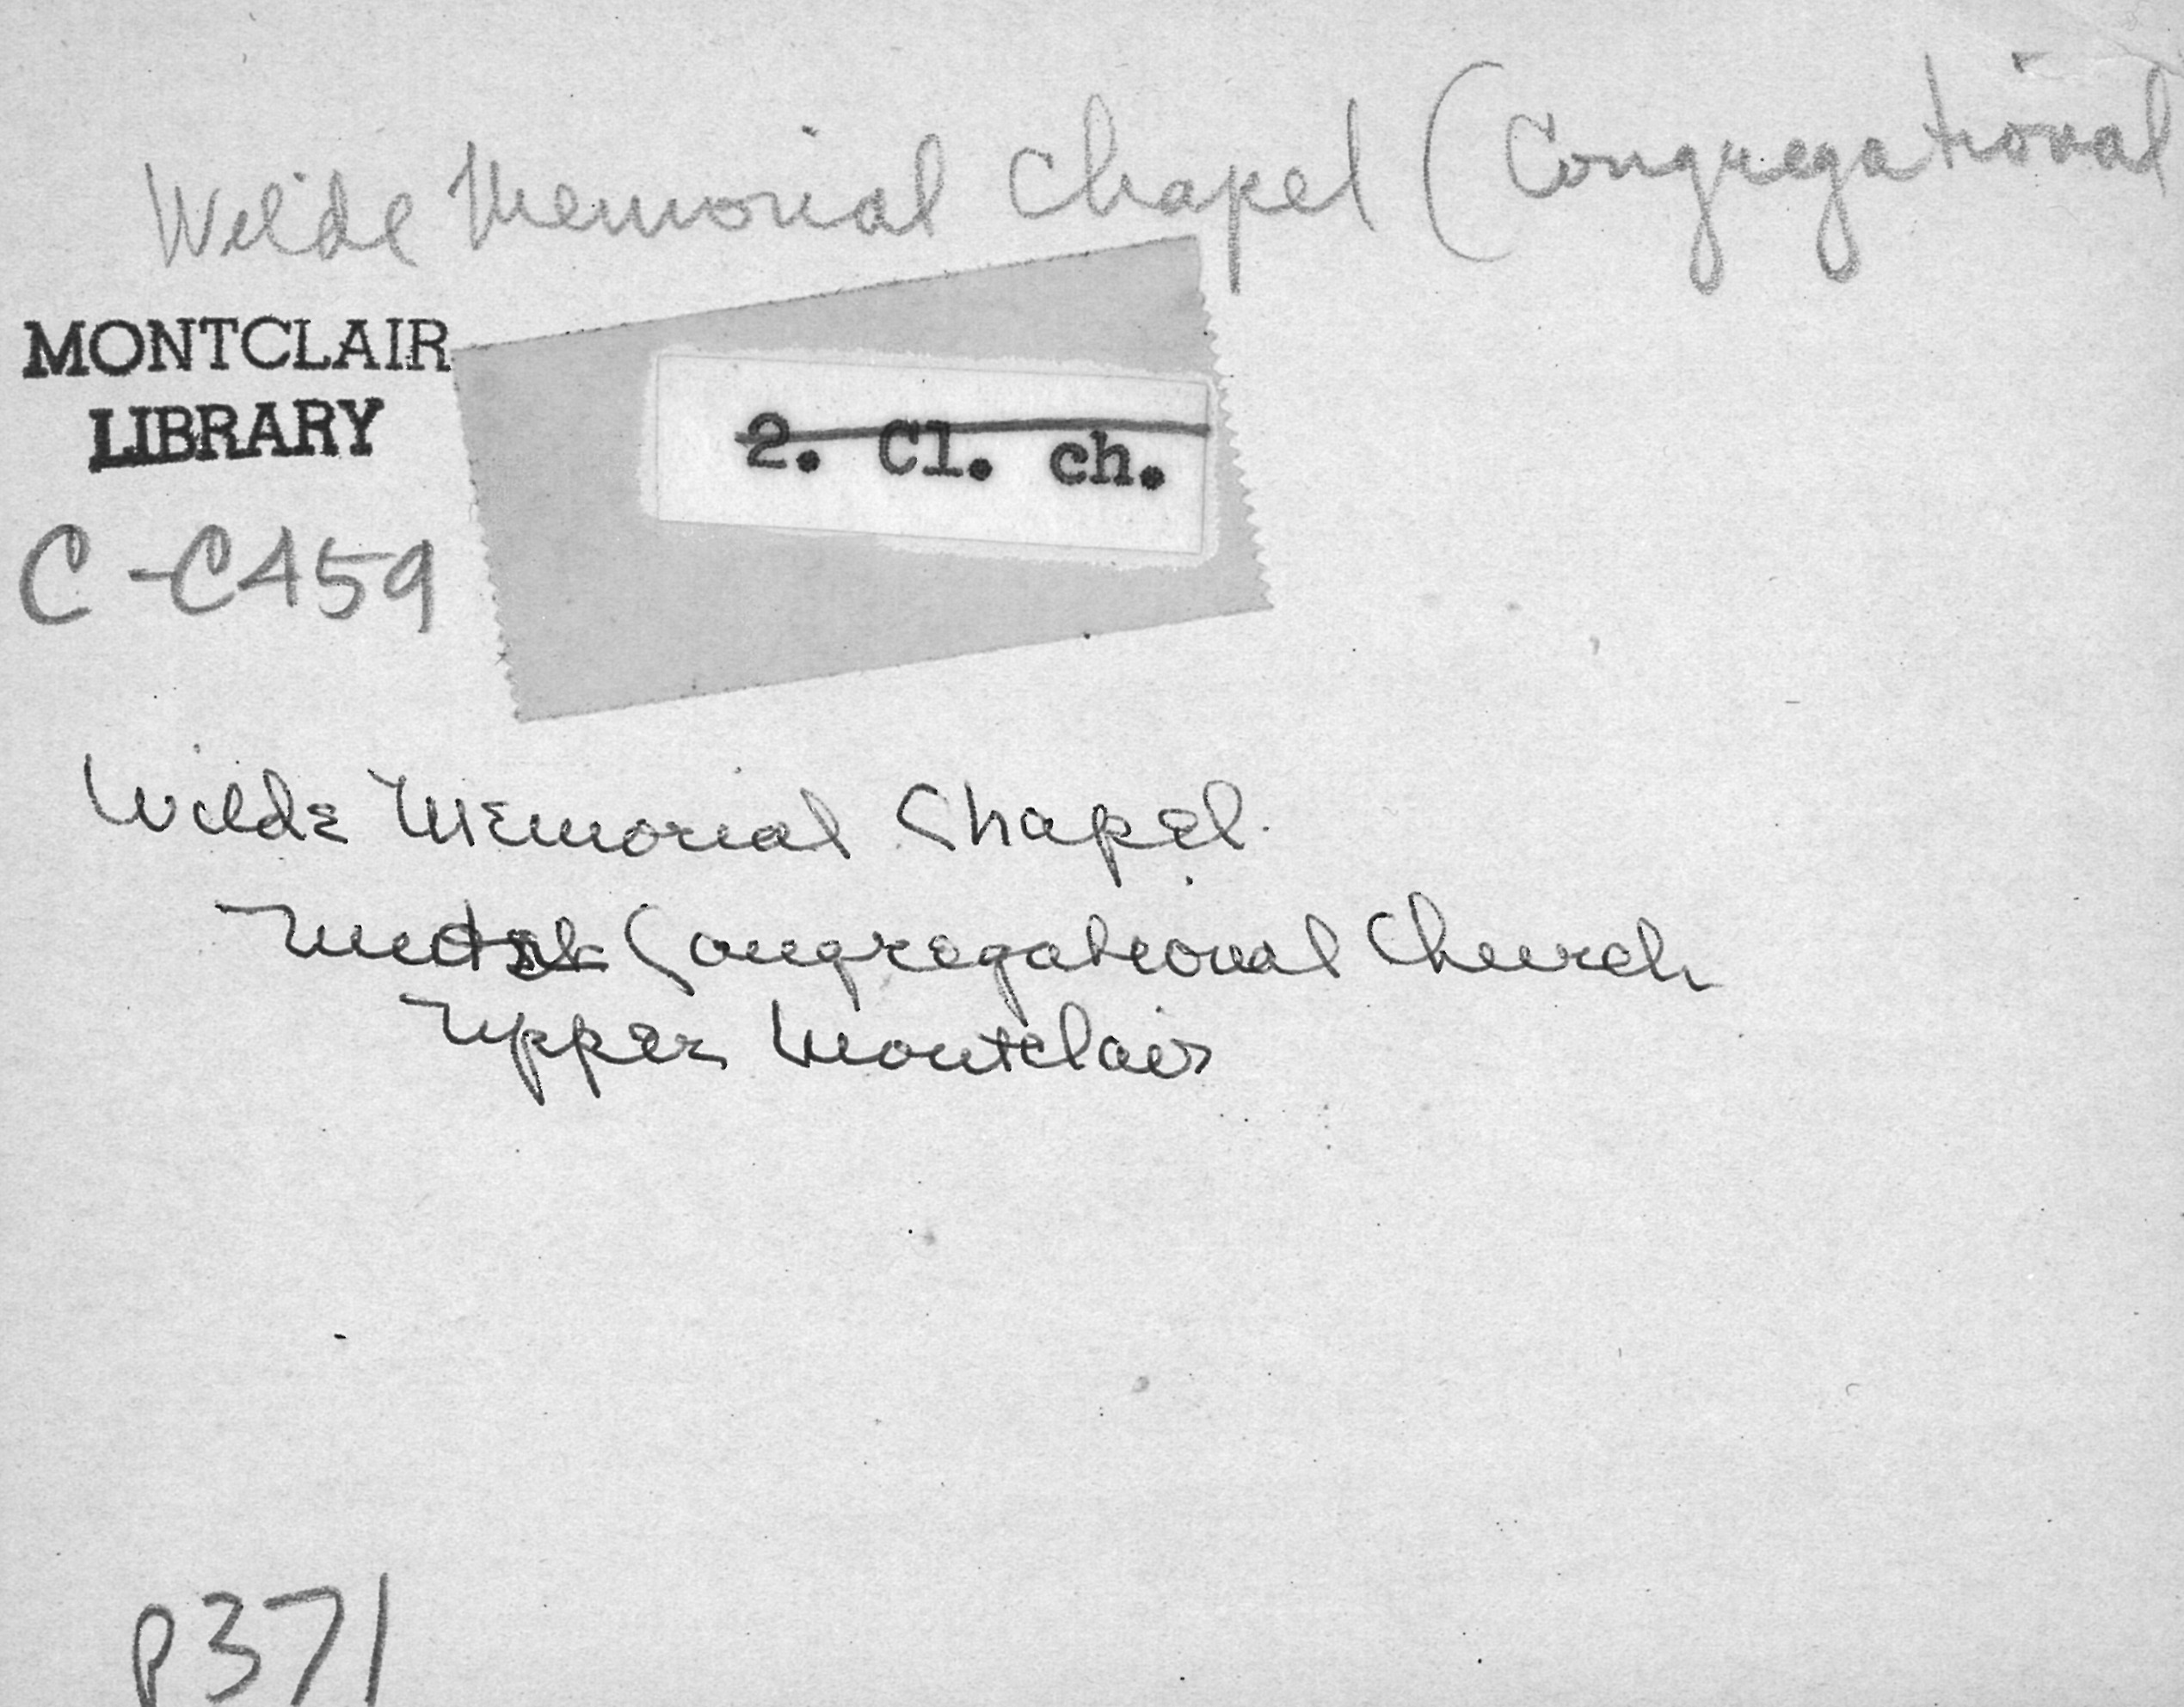 Wilde Memorial Chapel (Congregational
MONTCLAIR
LIBRARY
2. Cl. ch.
C-C459
Wilde Memorial Chapel.
Congregational Church
Upper Montclair
P371